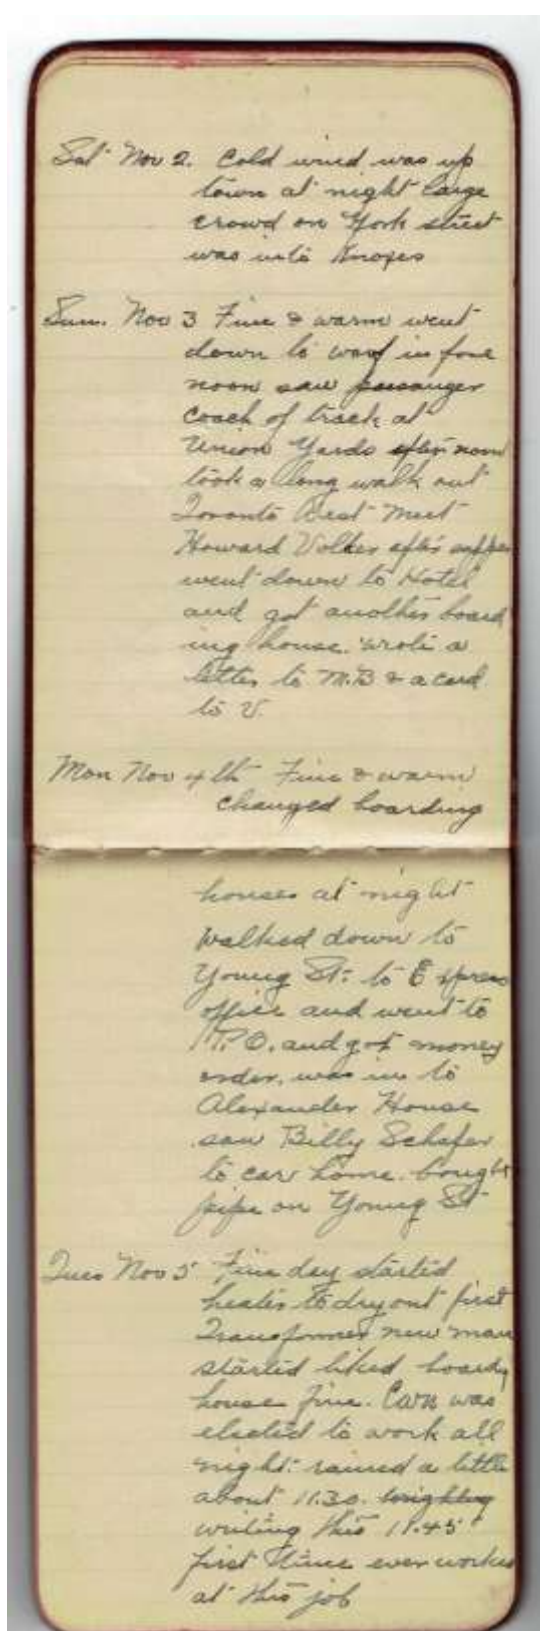 Sat Nov 2. Cold wind was up
town at night large
crowd on York street
was into Knoxes
Sun. Nov 3 Fine & warm went
down to in fore
noon saw passanger
coach of track at
Union Yards after noon
took a long walk out
Toronto West meet
Howard Volker after supper
went down to Hotel
and got another board
ing house. wrote a
letter to M.B & a card
to V.
Mon Nov 4th Fine & warm
changed boarding
houses at night
walked down to
Young St. to Express
office and went to
P.O. and got money
order. was in to
Alexander House
saw Billy Schafer
to car home. bought
pipe on Young St
Tues Nov 5 Fine day started
heater to dry out first
Transformer new man
started liked board
house fine. Carn was
elected to work all
night. rained a little
about 11.30.
writing this 11.45
first time ever worked
at this job